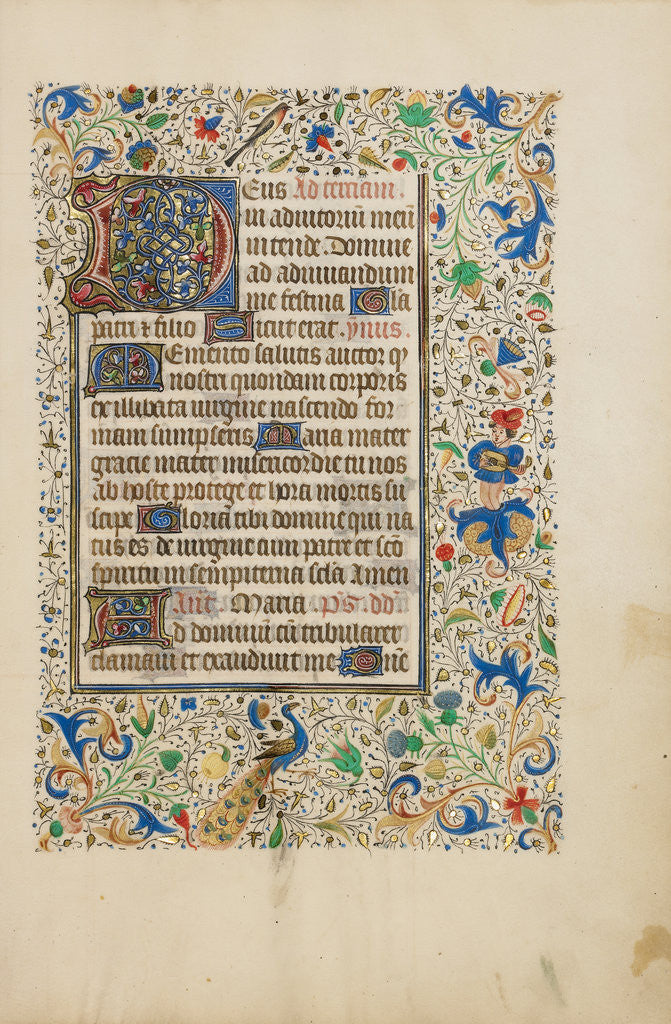 Deus Ad terciam.
in adiutoriū meū
intende. Domine
ad adiuuandum
me festina Gla
patri ⁊ filio Sicut erat. ymus
Memento salutis auctor qͥ
nostri quondam corporis
ex illibata uirgine nascendo for
mam sumpseris Maria mater
gracie mater misericordie tu nos
ab hoste protege et hora mortis su
scipe Gloria tibi domine qui na
tus es de uirgine cum patre et sc̄o
spiritu in sempiterna sc̄la Amen
Ant̄. Maria. pˢ. dd̄
Ad dominū cū tribularer
clamaui et exaudiuit me Dn̄e